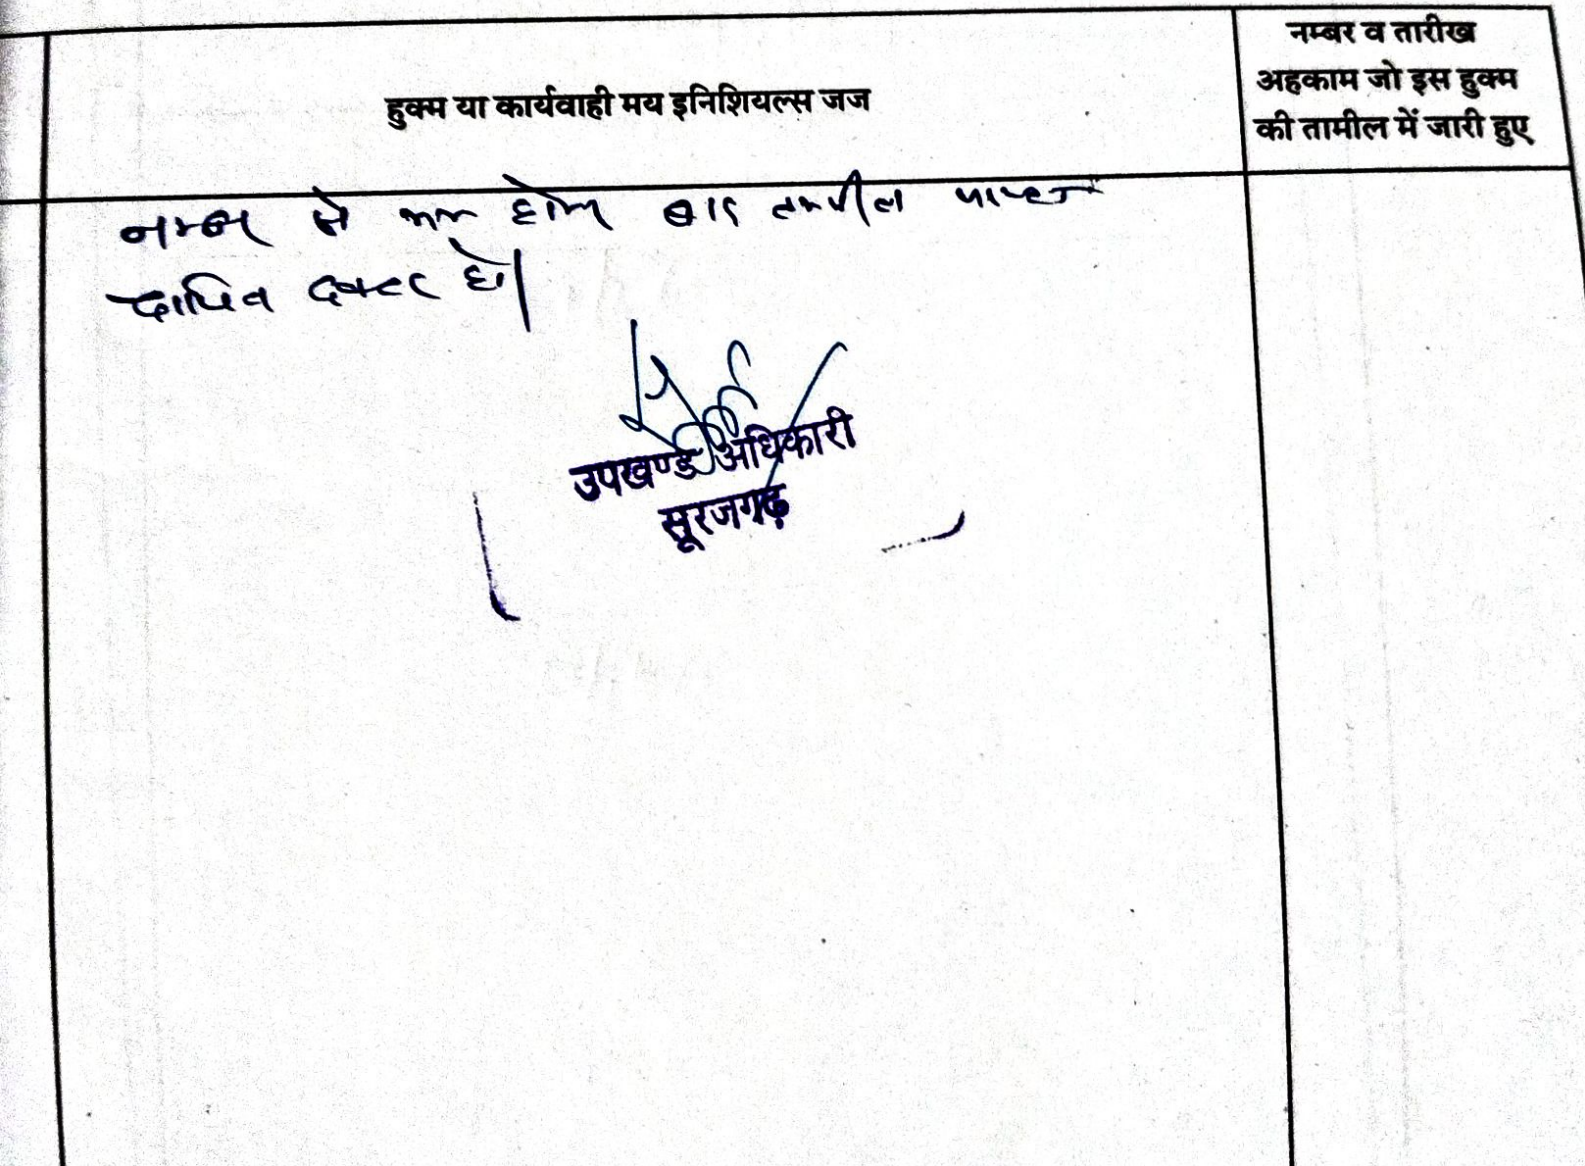 हुक्म या कार्यवाही मय इनिशियल्स जज
नम्बर व तारीख
अहकाम जो इस हुक्म
की तामील में जारी हुए
नम्बर से कम होकर बाद तामील
दाखिल दफ्तर हो।
उपखण्ड अधिकारी
सूरजगढ़